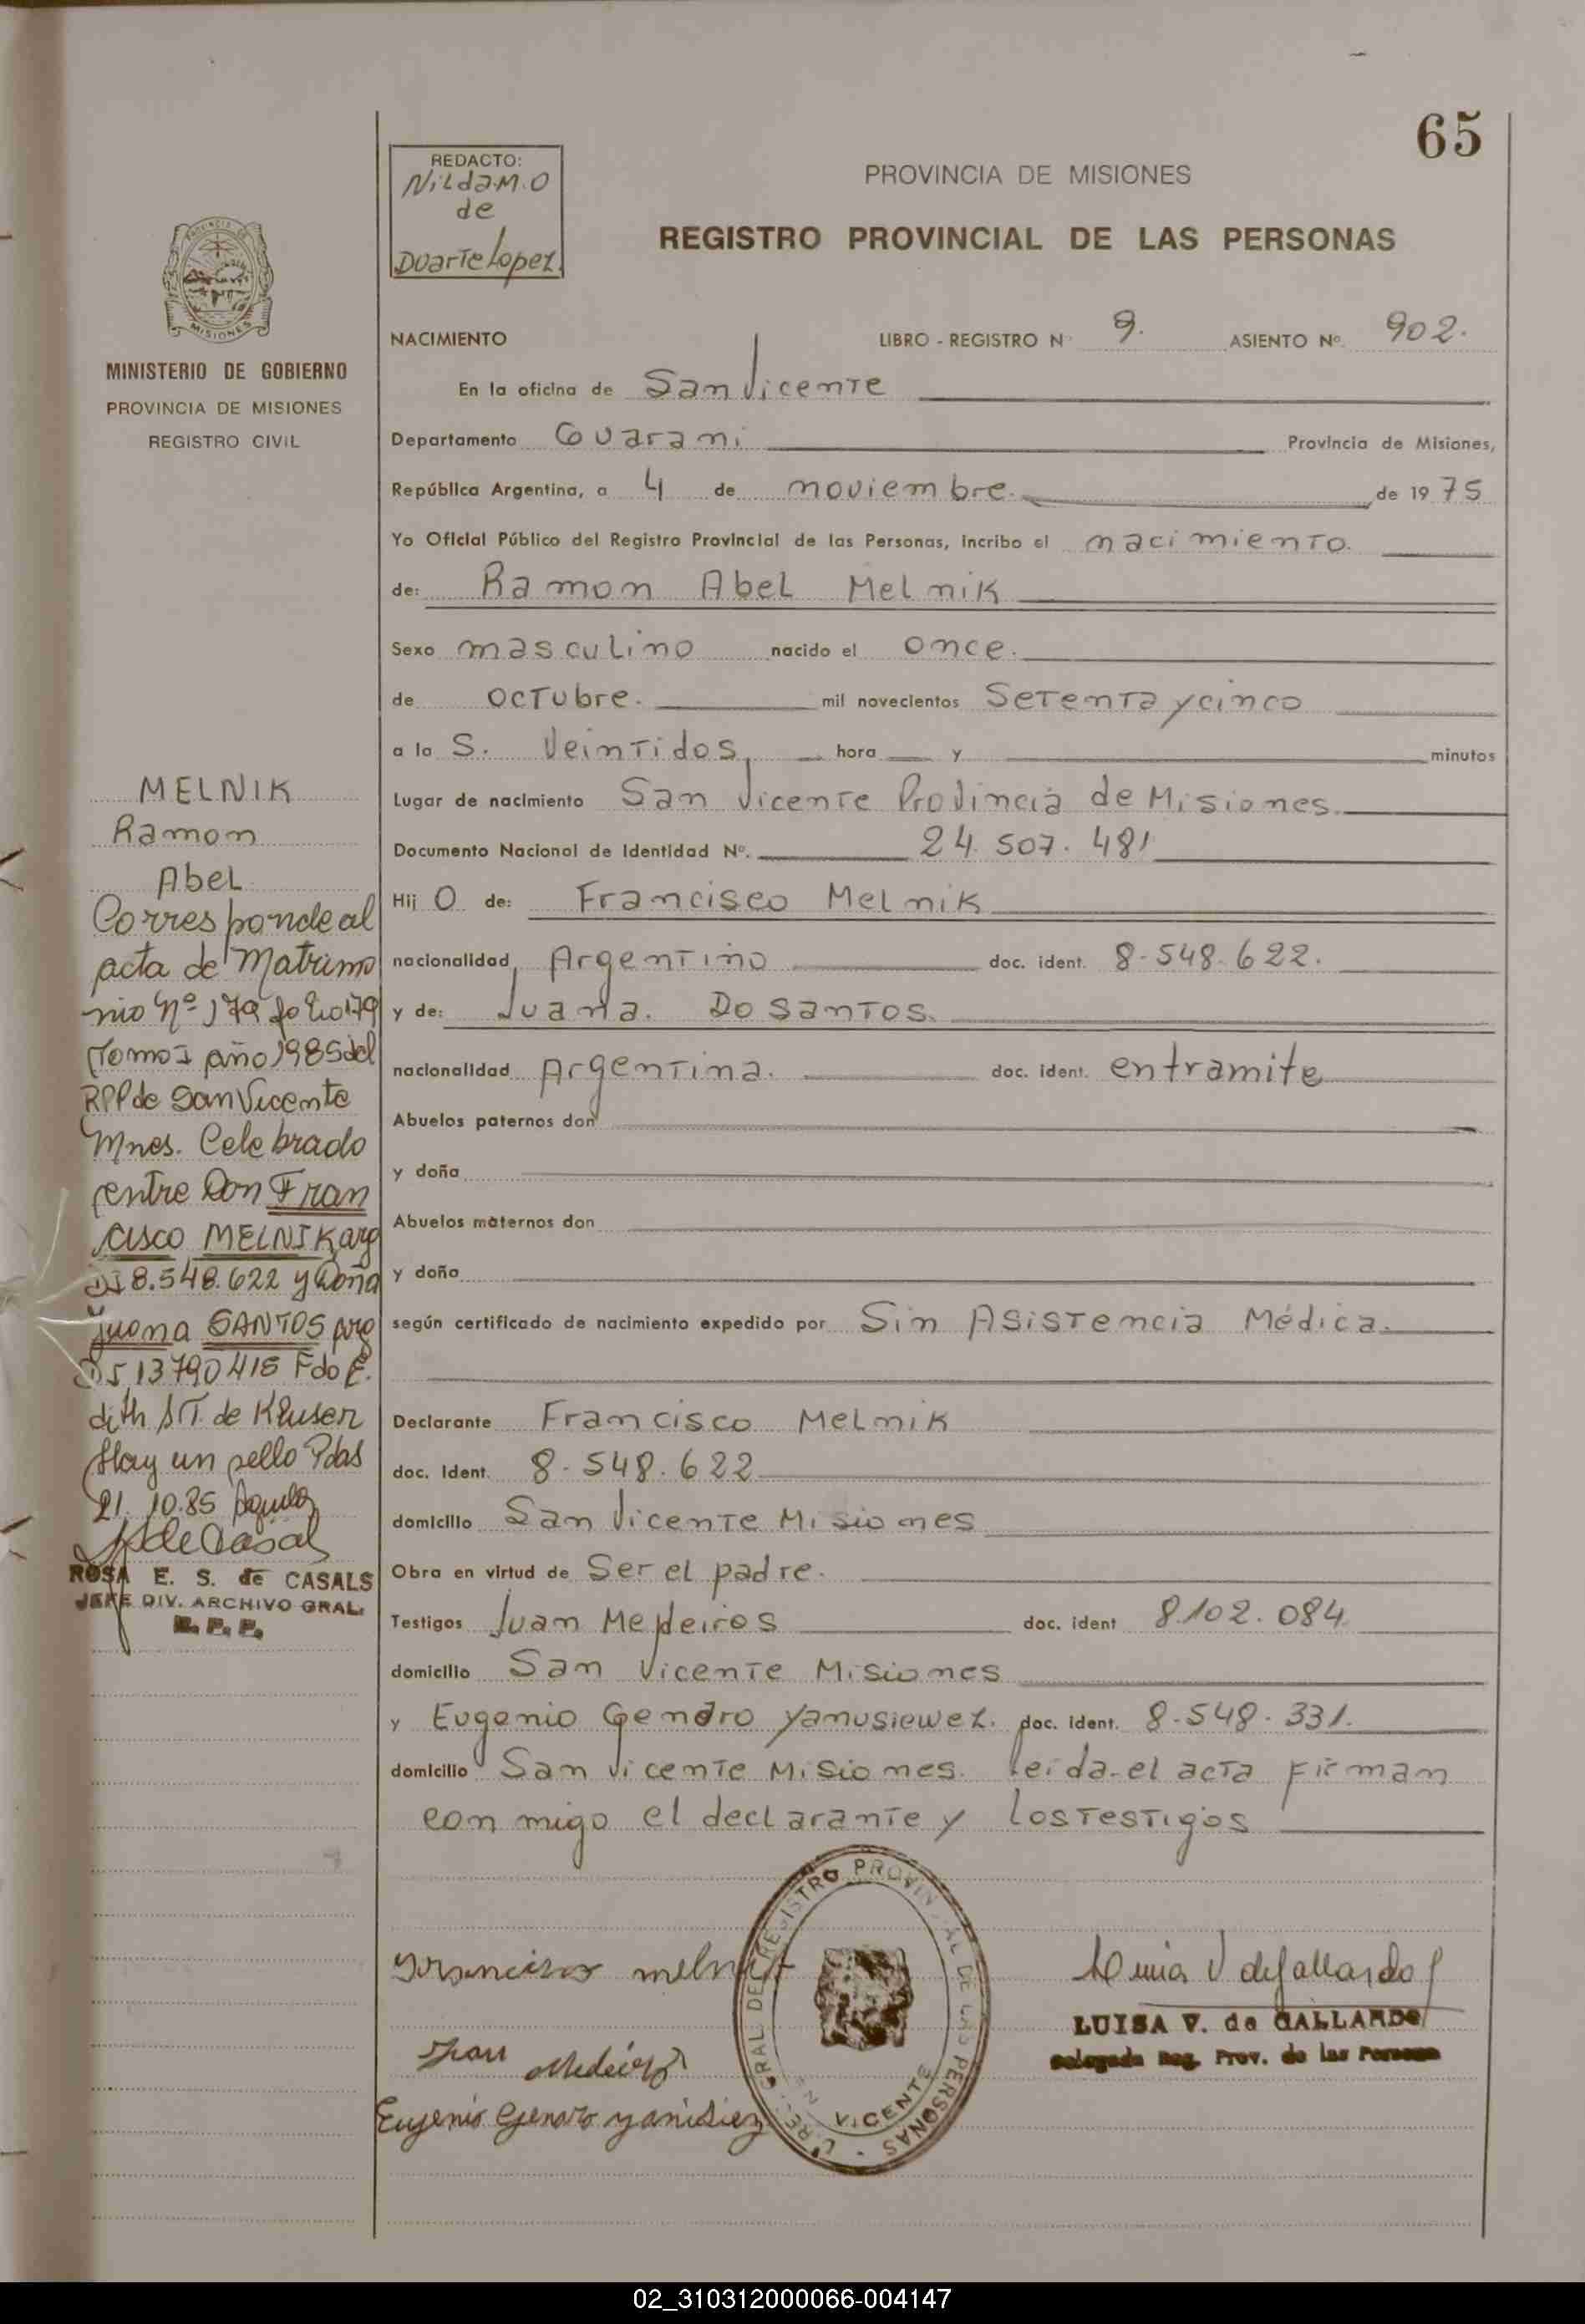 65
REDACTO:
Nilda.M.O
de
Duarte Lopez.
PROVINCIA DE MISIONES
REGISTRO PROVINCIAL DE LAS PERSONAS
MISIONES
MINISTERIO DE GOBIERNO
PROVINCIA DE MISIONES
REGISTRO CIVIL
NACIMIENTO LIBRO - REGISTRO Nº 9. ASIENTO Nº 902.
En la oficina de San Vicente
Departamento Guarani Provincia de Misiones,
República Argentina, a 4 de noviembre. de 1975
Yo Oficial Público del Registro Provincial de las Personas, incribo el nacimiento.
de: Ramon Abel Melnik
Sexo masculino nacido el once.
de octubre. mil novecientos setenta y cinco
a la S. Veintidos hora y minutos
Lugar de nacimiento San Vicente Provincia de Misiones.
Documento Nacional de Identidad Nº. 24.507.481
Hij o de: Francisco Melnik
nacionalidad Argentino doc. ident. 8.548.622.
y de: Juana. Do Santos.
nacionalidad Argentina. doc. ident. entramite
Abuelos paternos don
y doña
Abuelos maternos don
y doña
según certificado de nacimiento expedido por Sin Asistencia Médica.
Declarante Francisco Melnik
doc. Ident. 8.548.622
domicilio San Vicente Misiones
Obra en virtud de Ser el padre.
Testigos Juan Medeiros doc. ident 8.102.084
domicilio San Vicente Misiones
y Eugenio Genaro Yanusiewez. doc. ident. 8.548.331.
domicilio San Vicente Misiones. leida el acta firman
con migo el declarante y los testigos
MELNIK
Ramon
Abel
Corresponde al
acta de Matrimo
nio nº 179 folio 179
Tomo I año 1985 del
RPP de San Vicente
Mnes. Celebrado
entre Don Fran
cisco MELNIK arg
DI 8.548.622 y Doña
Juana SANTOS arg
13790415 Fdo E.
dith S.T. de Kluser
Hay un sello Pdas
21.10.85
ROSA E. S. de CASALS
JEFE DIV. ARCHIVO GRAL.
R. P. P.
Francisco melnik
Juan Medeiros
Eugenio Genaro
DIREC. GRAL. DEL REGISTRO PROVINCIAL DE LAS PERSONAS
VICENTE
Luisa V de Gallardo
LUISA V. de GALLARDO
Delegada Reg. Prov. de las Personas
02_310312000066-004147